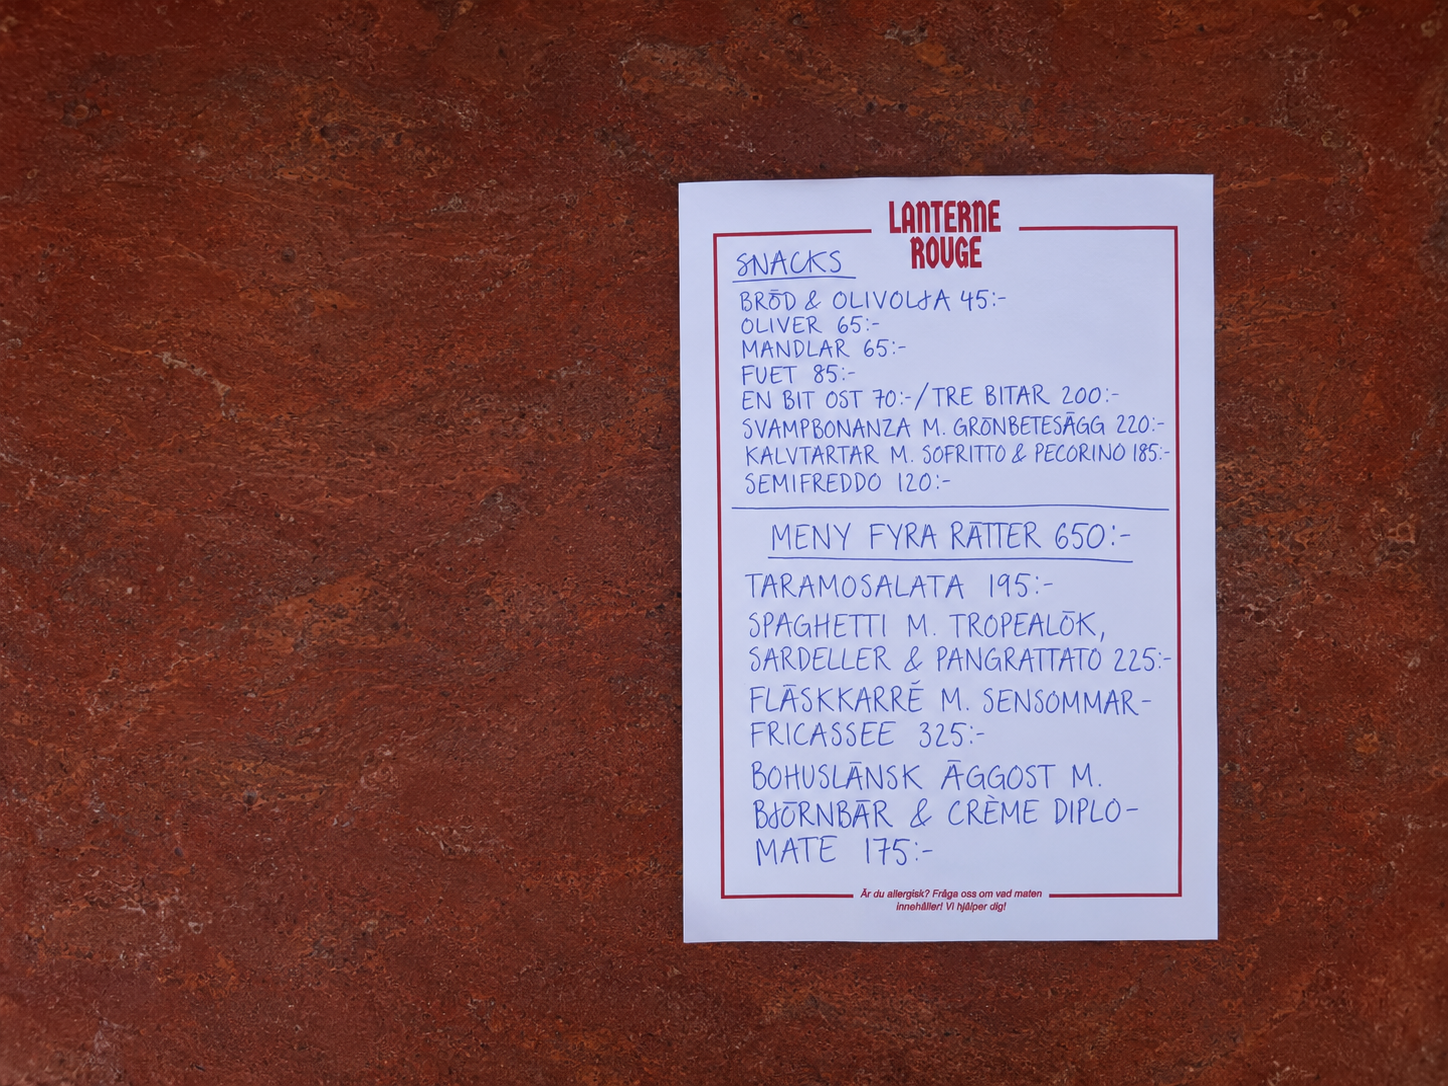 LANTERNE
ROUGE
SNACKS
BRÖD & OLIVOLJA 45:-
OLIVER 65:-
MANDLAR 65:-
FUET 85:-
EN BIT OST 70:-/TRE BITAR 200:-
SVAMPBONANZA M. GRÖNBETESÄGG 220:-
KALVTARTAR M. SOFRITTO & PECORINO 185:-
SEMIFREDDO 120:-
MENY FYRA RÄTTER 650:-
TARAMOSALATA 195:-
SPAGHETTI M. TROPEALÖK,
SARDELLER & PANGRATTATO 225:-
FLÄSKKARRÉ M. SENSOMMAR-
FRICASSEE 325:-
BOHUSLÄNSK ÄGGOST M.
BJÖRNBÄR & CRÈME DIPLO-
MATE 175:-
Är du allergisk? Fråga oss om vad maten
innehåller! Vi hjälper dig!